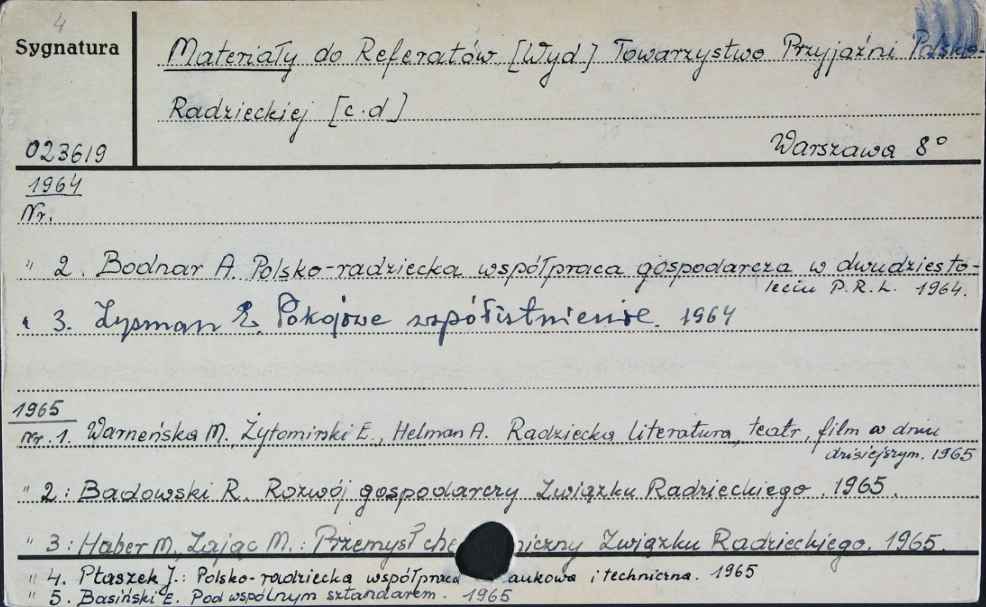 4
Sygnatura
Materiały do Referatów [Wyd] Towarzystwo Przyjaźni Polsko-
Radzieckiej [c.d]
023619
Warszawa 8°
1964
Nr.
" 2. Bodnar A. Polsko-radziecka współpraca gospodarcza w dwudziesto-
leciu P.R.L. 1964.
" 3. Zysman E. Pokojowe współistnienie. 1964
1965
Nr. 1. Warneńska M., Żytomirski E., Helman A. Radziecka literatura, teatr, film w dniu
dzisiejszym. 1965
" 2: Badowski R. Rozwój gospodarczy Związku Radzieckiego. 1965.
" 3: Haber M., Zając M.: Przemysł che niczny Związku Radzieckiego. 1965.
" 4. Ptaszek J.: Polsko-radziecka współpraca aukowa i techniczna. 1965
" 5. Basiński E. Pod wspólnym sztandarem. 1965